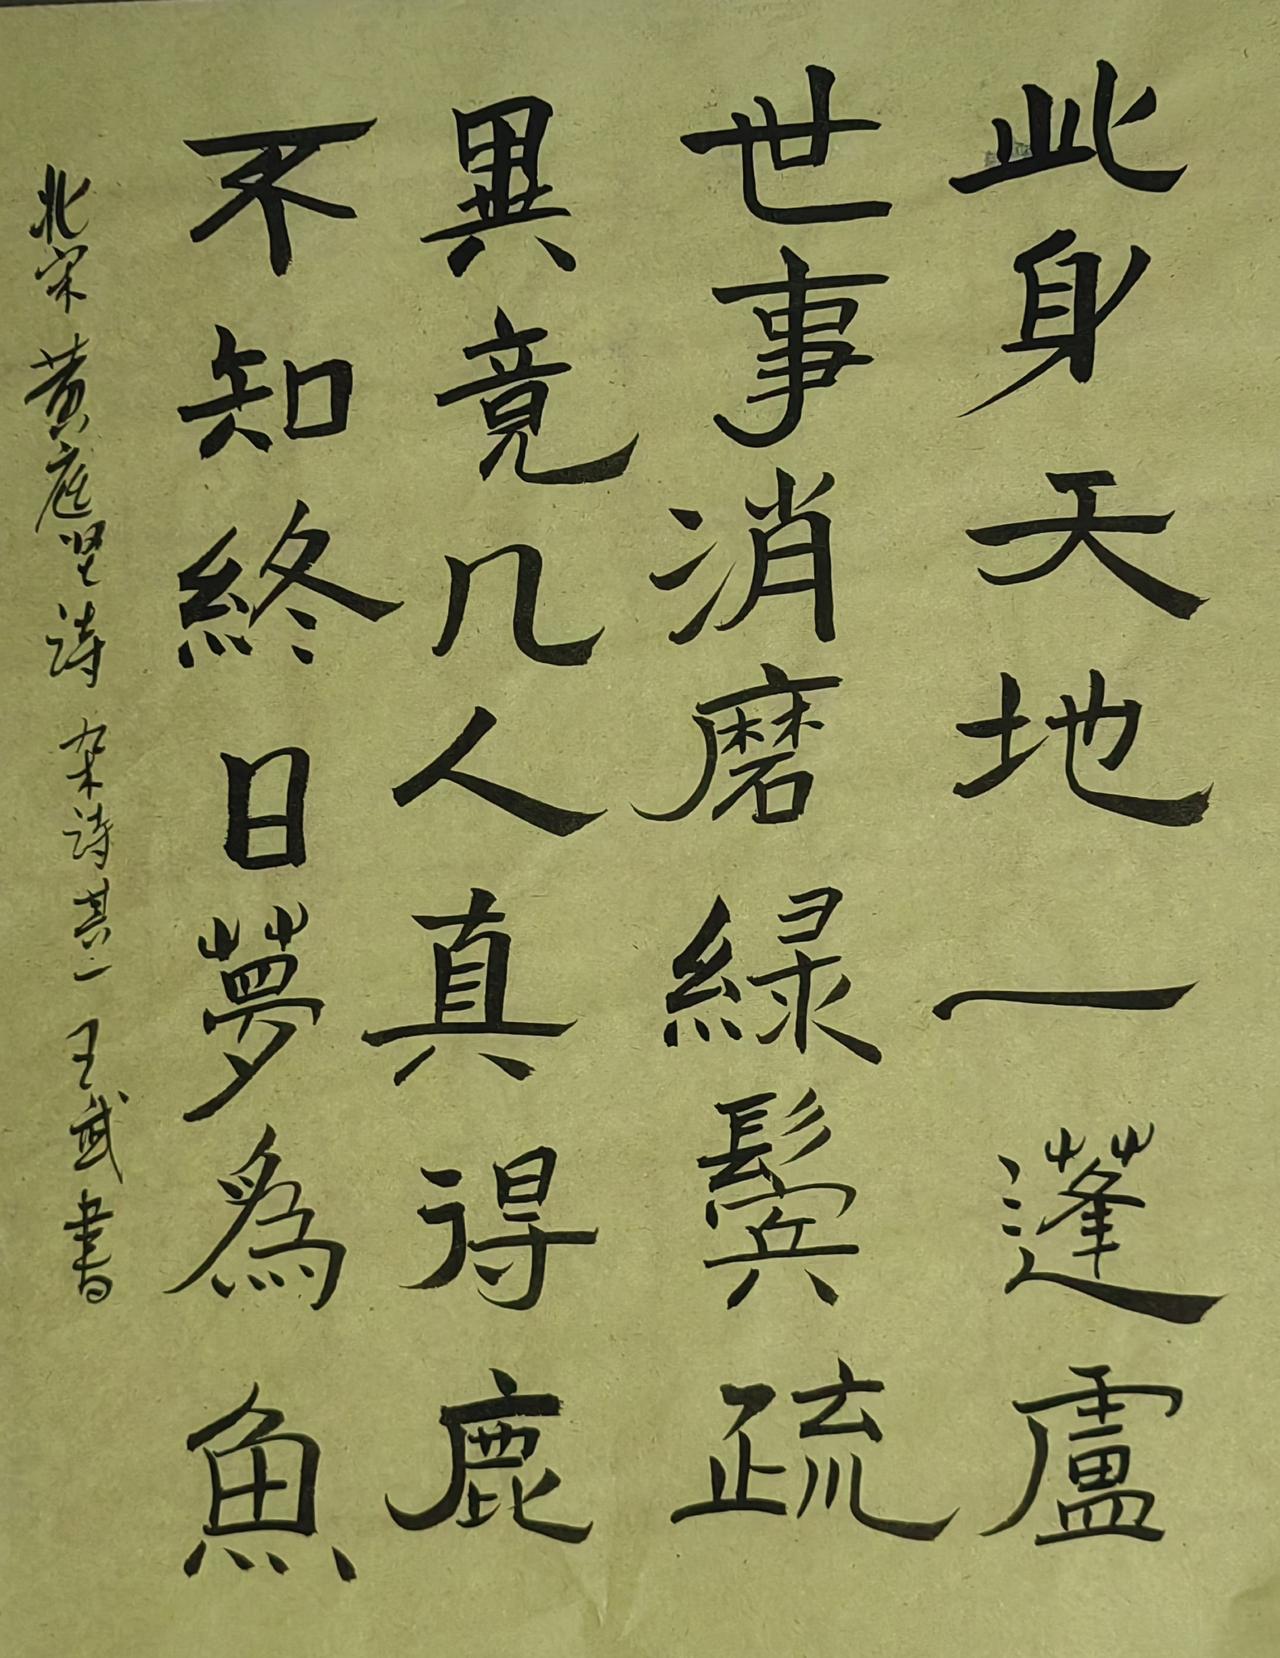 此身天地一蓬廬
世事消磨緑鬢疏
畢竟几人真得鹿
不知終日夢為魚
北宋黄庭坚诗 杂诗其一 王武書